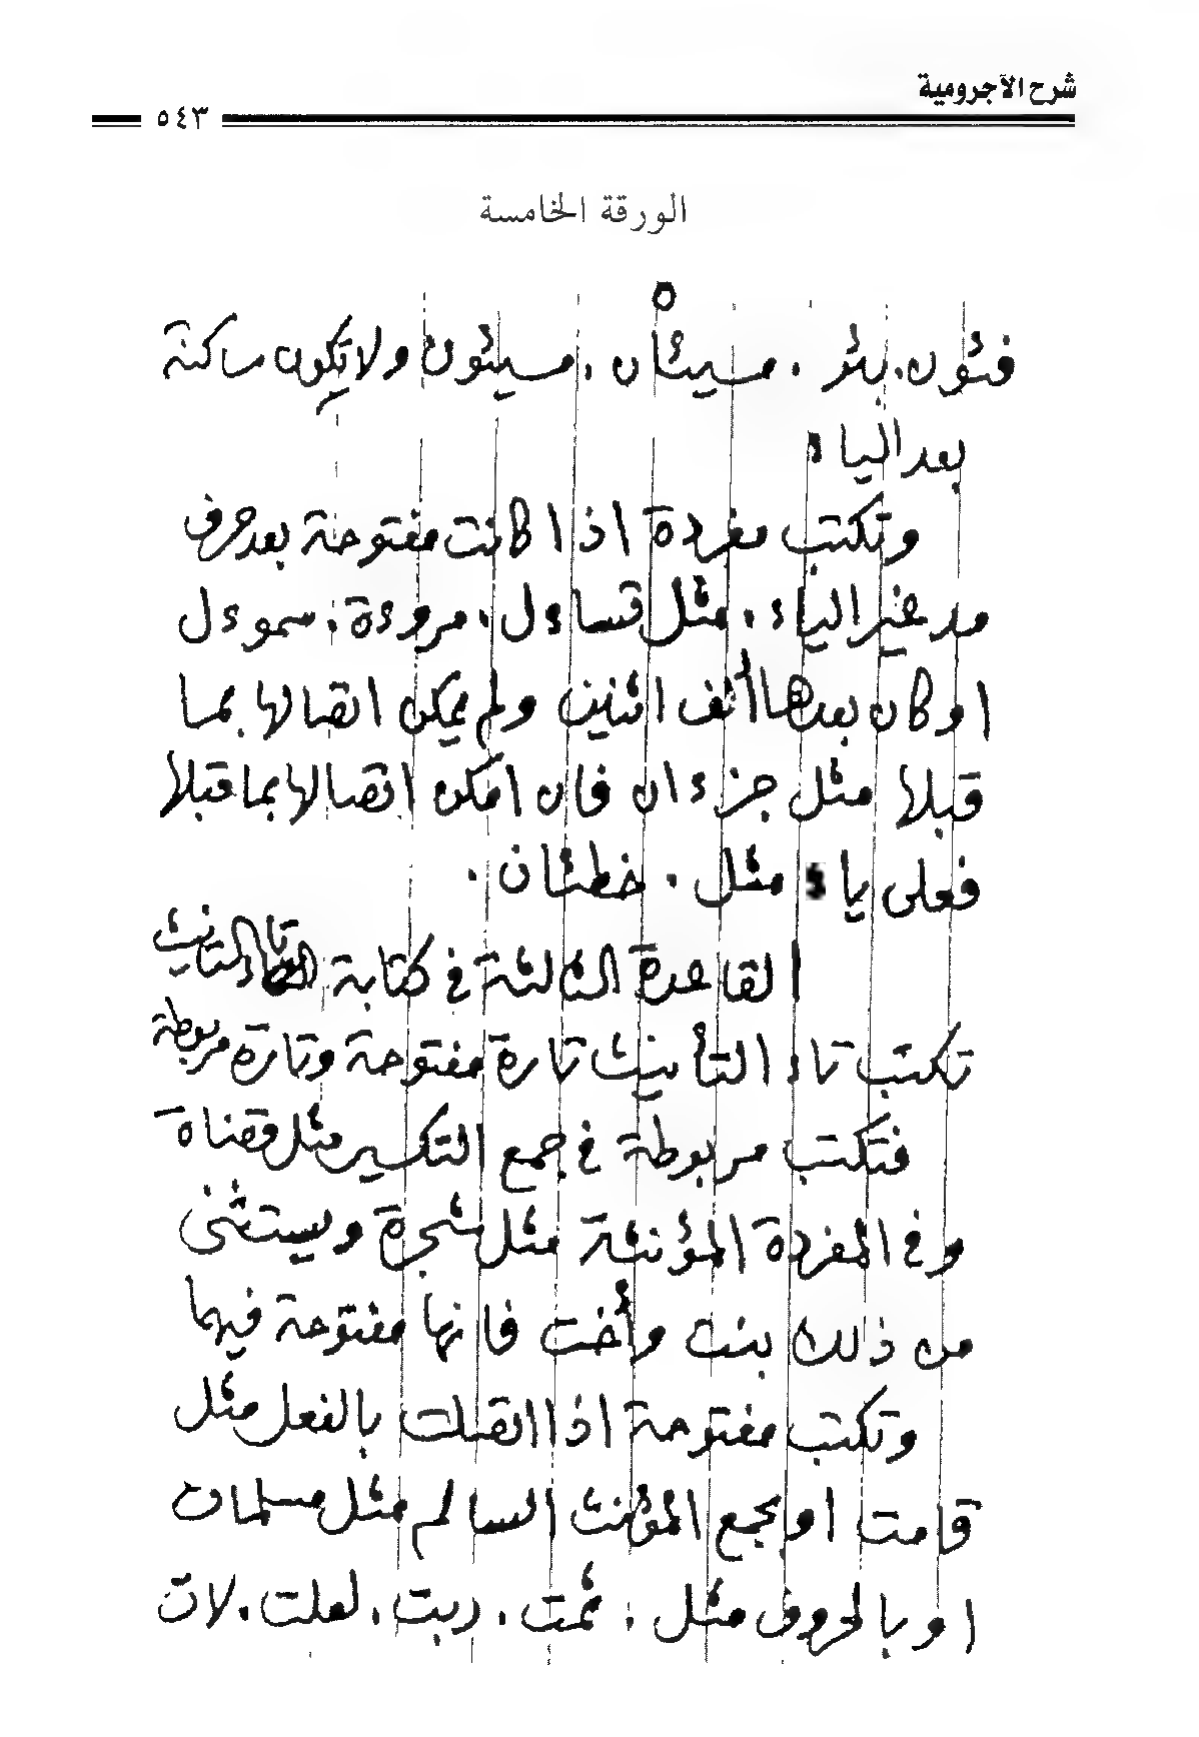 شرح الآجرومية
٥٤٣
الورقة الخامسة
فئون. بئر . مسيئان . مسيئون ولا تكون ساكنة
بعد الياء
وتكتب مفردة اذا كانت مفتوحة بعد حرف
مد غير الياء . مثل تساءل . مروءة . سموءل
او كان بعدها ألف اثنين ولم يمكن اتصالها بما
قبلها مثل جزءان فان امكن اتصالها بما قبلها
فعلى ياء مثل . خطئان .
القاعدة الثالثة في كتابة تاء التانيث
تكتب تاء التأنيث تارة مفتوحة وتارة مربوطة
فتكتب مربوطة في جمع التكسير مثل قضاة
وفي المفردة المؤنثة مثل شجرة ويستثنى
من ذلك بنت وأخت فانها مفتوحة فيهما
وتكتب مفتوحة اذا اتصلت بالفعل مثل
قامت او بجمع المؤنث السالم مثل مسلمات
او بالحروف مثل : ثمت . ربت . لعلت . لات